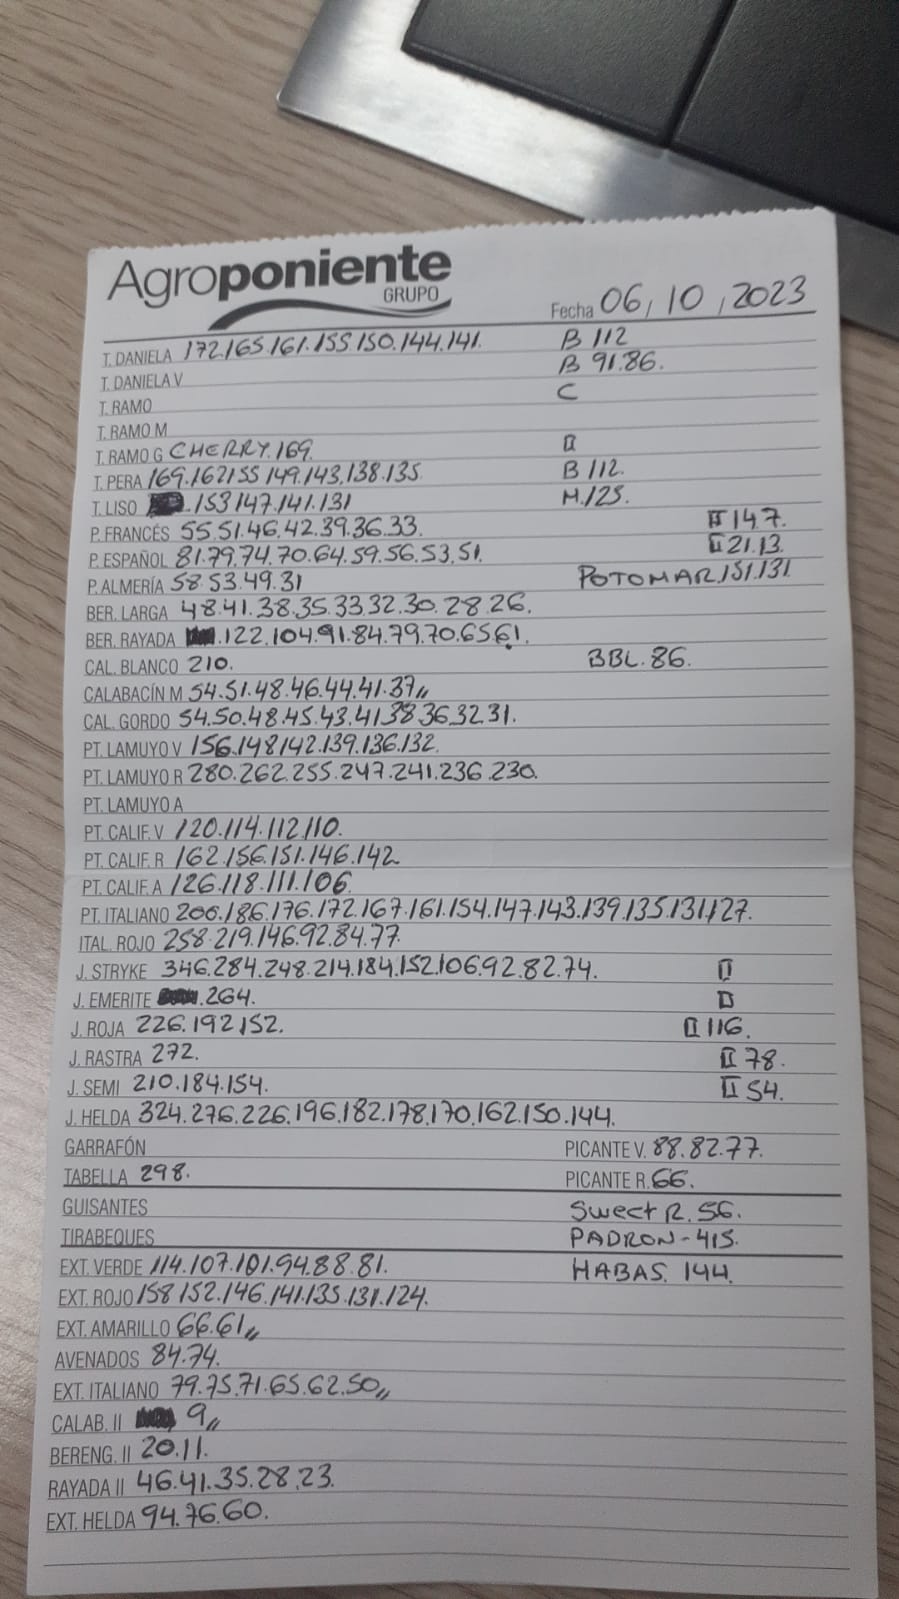 Agroponiente
GRUPO
Fecha 06, 10, 2023
T. DANIELA 172.165.161.155.150.144.141. B 112
T. DANIELA V B 91.86.
T. RAMO C
T. RAMO M
T. RAMO G CHERRY.169. II
T. PERA 169.162155.149.143.138.135. B 112.
T. LISO .153147.141.131 M.125.
P. FRANCÉS 55.51.46.42.39.36.33. II 14.7.
P. ESPAÑOL 81.79.74.70.64.59.56.53.51. II 21.13.
P. ALMERÍA 58.53.49.31 POTOMAR.151.131.
BER. LARGA 48.41.38.35.33.32.30.28.26.
BER. RAYADA .122.104.91.84.79.70.65.61.
CAL. BLANCO 210. BBL.86.
CALABACÍN M 54.51.48.46.44.41.37,,
CAL. GORDO 54.50.48.45.43.41.38.36.32.31.
PT. LAMUYO V 156.148142.139.136.132.
PT. LAMUYO R 280.262.255.247.241.236.230.
PT. LAMUYO A
PT. CALIF. V 120.114.112.110.
PT. CALIF. R 162.156.151.146.142
PT. CALIF. A 126.118.111.106.
PT. ITALIANO 206.186.176.172.167.161.154.147.143.139.135.131.127.
ITAL. ROJO 258.219.146.92.84.77.
J. STRYKE 346.284.248.214.184.152.106.92.82.74. II
J. EMERITE .264. II
J. ROJA 226.192.152. II 116.
J. RASTRA 272. II 78.
J. SEMI 210.184.154. II 54.
J. HELDA 324.276.226.196.182.178.170.162.150.144.
GARRAFÓN PICANTE V. 88.82.77.
TABELLA 298. PICANTE R. 66.
GUISANTES Sweet R. 56.
TIRABEQUES PADRON-415.
EXT. VERDE 114.107.101.94.88.81. HABAS. 144.
EXT. ROJO 158 152.146.141.135.131.124.
EXT. AMARILLO 66.61,,
AVENADOS 84.74.
EXT. ITALIANO 79.75.71.65.62.50,,
CALAB. II 9,,
BERENG. II 20.11.
RAYADA II 46.41.35.28.23.
EXT. HELDA 94.76.60.